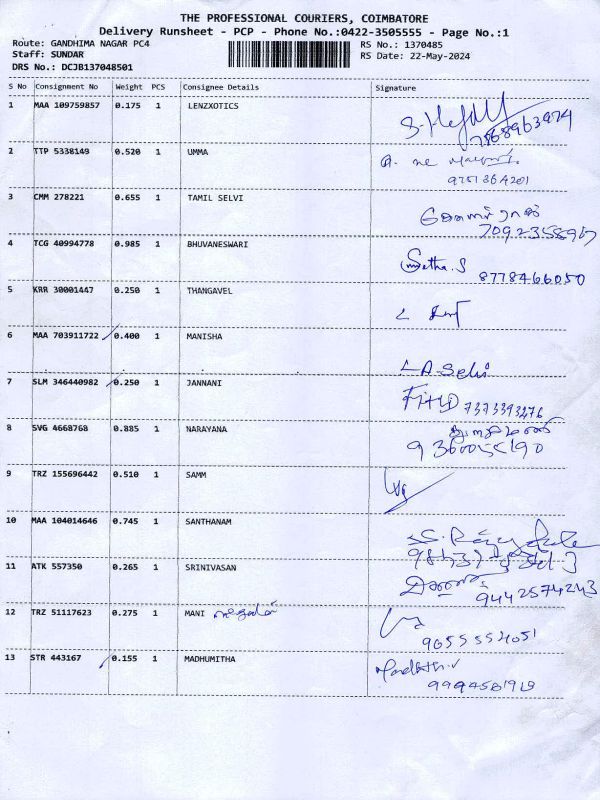 THE PROFESSIONAL COURIERS, COIMBATORE
Delivery Runsheet - PCP - Phone No.:0422-3505555 - Page No.:1
Route: GANDHIMA NAGAR PC4 RS No.: 1370485
Staff: SUNDAR RS Date: 22-May-2024
DRS No.: DCJB137048501
S No Consignment No Weight PCS Consignee Details Signature
1 MAA 109759857 0.175 1 LENZXOTICS
2 TTP 5338149 0.520 1 UMMA
9751364201
3 CMM 278221 0.655 1 TAMIL SELVI
4 TCG 40994778 0.985 1 BHUVANESWARI
8778466050
5 KRR 30001447 0.250 1 THANGAVEL
6 MAA 703911722 0.400 1 MANISHA
7 SLM 346440982 0.250 1 JANNANI
7373393276
8 SVG 4668768 0.885 1 NARAYANA
9 TRZ 155696442 0.510 1 SAMM
10 MAA 104014646 0.745 1 SANTHANAM
11 ATK 557350 0.265 1 SRINIVASAN
9442574243
12 TRZ 51117623 0.275 1 MANI
13 STR 443167 0.155 1 MADHUMITHA